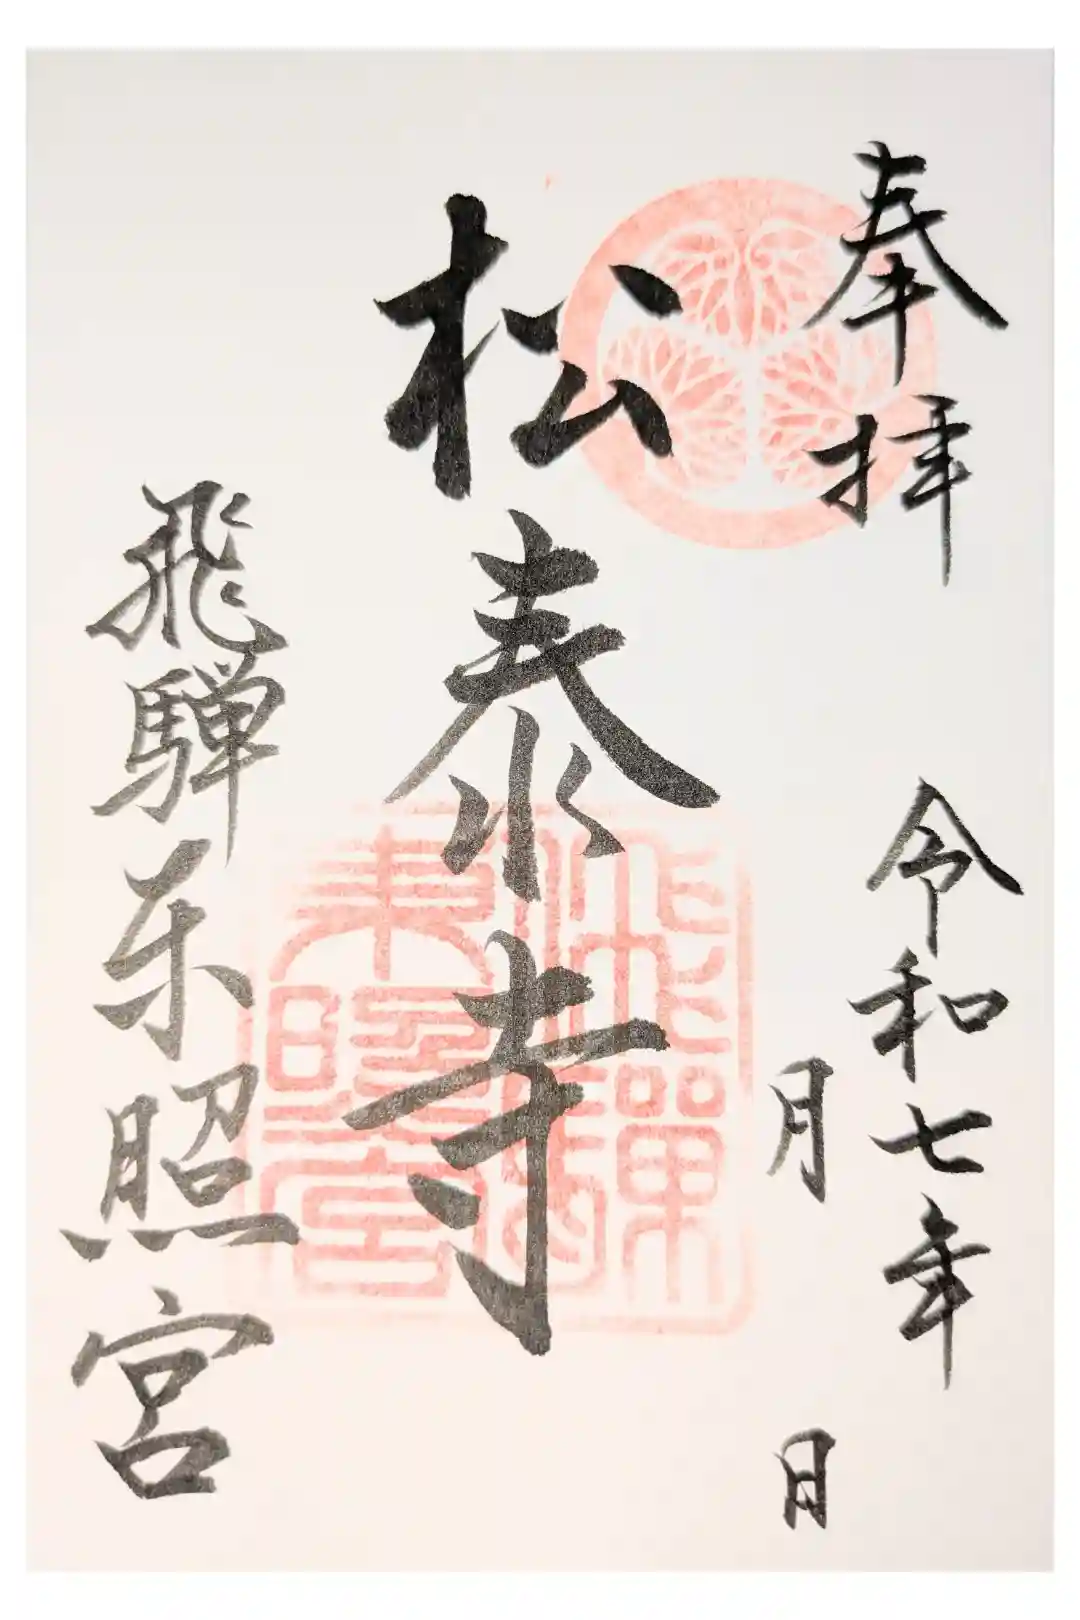 奉拝
令和七年
月 日
松泰寺
飛騨東照宮
飛騨東照宮